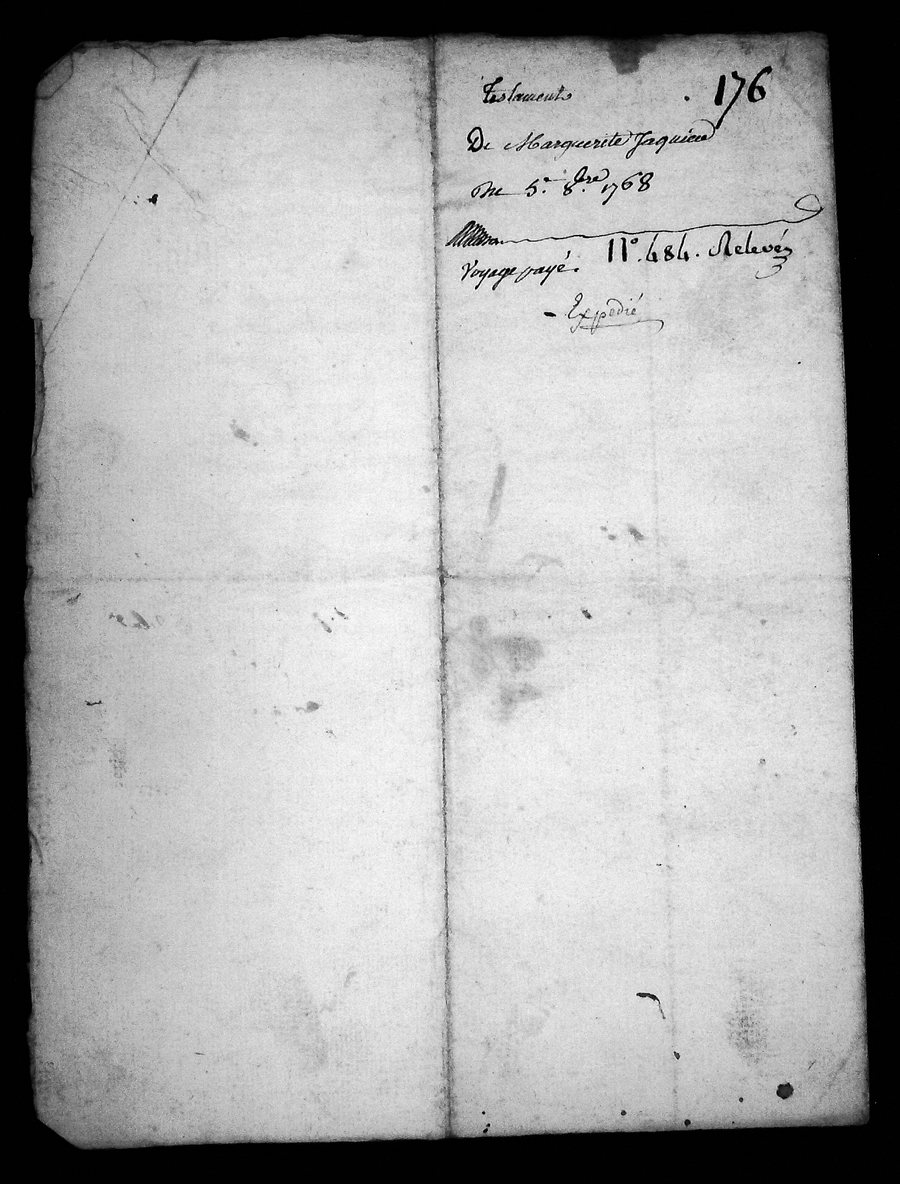 Testament 176
De Marguerite Jaquier
Du 5.e 8.bre 1768
Voyage payé. N°. 484. Relevé
Expedié